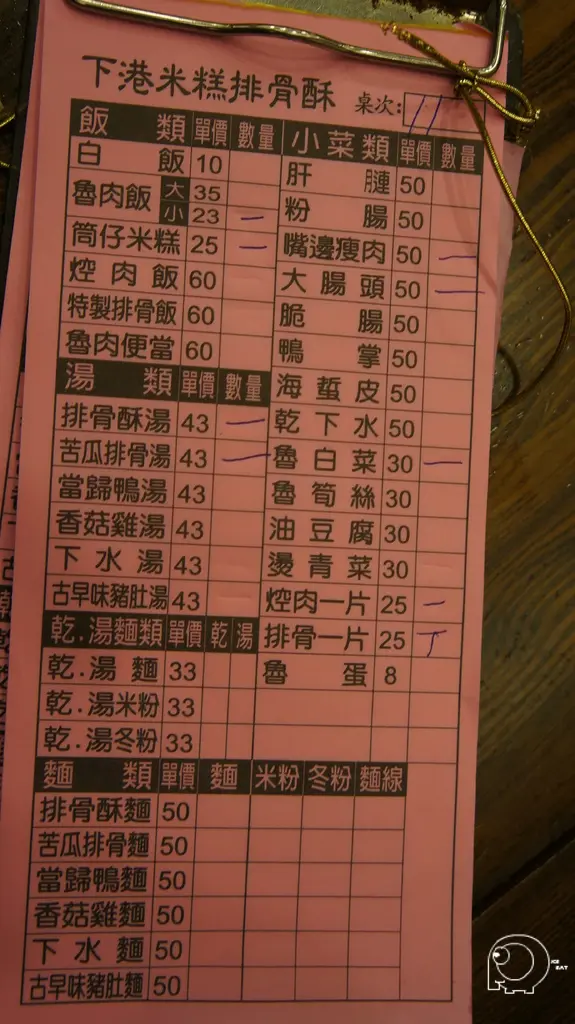 下港米糕排骨酥 桌次: 11
飯類 單價 數量 小菜類 單價 數量
白飯 10 肝腱 50
魯肉飯 大 35 粉腸 50
小 23 一
筒仔米糕 25 一 嘴邊瘦肉 50 一
焢肉飯 60 大腸頭 50 一
特製排骨飯 60 脆腸 50
魯肉便當 60 鴨掌 50
湯類 單價 數量 海蜇皮 50
排骨酥湯 43 一 乾下水 50
苦瓜排骨湯 43 一 魯白菜 30 一
當歸鴨湯 43 魯筍絲 30
香菇雞湯 43 油豆腐 30
下水湯 43 燙青菜 30
古早味豬肚湯 43 焢肉一片 25 一
乾.湯麵類 單價 乾 湯 排骨一片 25 丅
乾.湯麵 33 魯蛋 8
乾.湯米粉 33
乾.湯冬粉 33
麵類 單價 麵 米粉 冬粉 麵線
排骨酥麵 50
苦瓜排骨麵 50
當歸鴨麵 50
香菇雞麵 50
下水麵 50
古早味豬肚麵 50